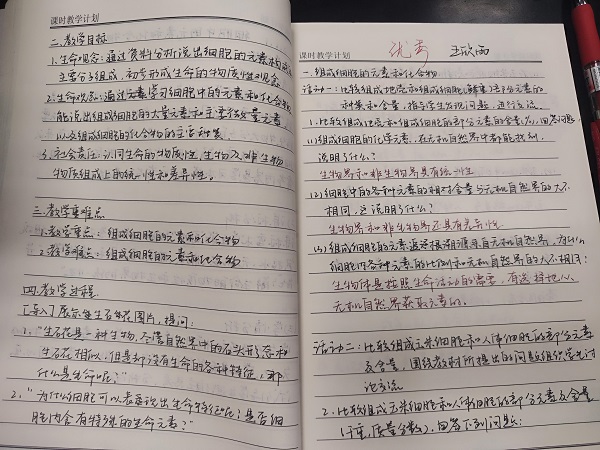 课时教学计划
二、教学目标
1.生命观念:通过资料分析说出细胞的元素和
主要分子组成,初步形成生命的物质性观念
2.生命观念:通过学习细胞中的元素和化合物
能说出组成细胞的大量元素和主要微量元素,
以及组成细胞的化合物的主要种类
3.社会责任:认同生命的物质性,生物及非生物
物质组成上的统一性和差异性。
三、教学重难点
1.教学重点:组成细胞的元素和化合物
2.教学难点:组成细胞的元素和化合物
四、教学过程
[导入]展示生石花图片,提问:
1."生石花是一种生物,尽管自然界中的石头形态和
生石花相似,但是却没有生命的各种特征,那
什么是生命呢?"
2."为什么细胞可以表现出生命特征呢?是否细
胞内含有特殊的生命元素?"
课时教学计划
优秀 王欣雨
一、组成细胞的元素和化合物
活动一:比较组成地壳和组成细胞的部分元素的
种类和含量,指导学生就问题,进行交流
1.比较组成地壳和组成细胞的部分元素的含量,回答问题
(1)组成细胞的化学元素,在无机自然界中都能找到,
说明了什么?
生物界和非生物界具有统一性
(2)细胞中的各种元素的相对含量与无机自然界的大不
相同,这说明了什么?
生物界和非生物界还具有差异性
(3)组成细胞的元素追根溯源来自无机自然界,为什么
细胞内各种元素的比例和无机自然界的大不相同?
生物体是按照生命活动的需要,有选择地从
无机自然界获取元素的。
活动二:比较组成玉米细胞和人体细胞的部分元素
及含量,围绕教材所提出的问题组织学生讨
论交流
2.比较组成玉米细胞和人体细胞的部分元素及含量
(干重,质量分数),回答下列问题: